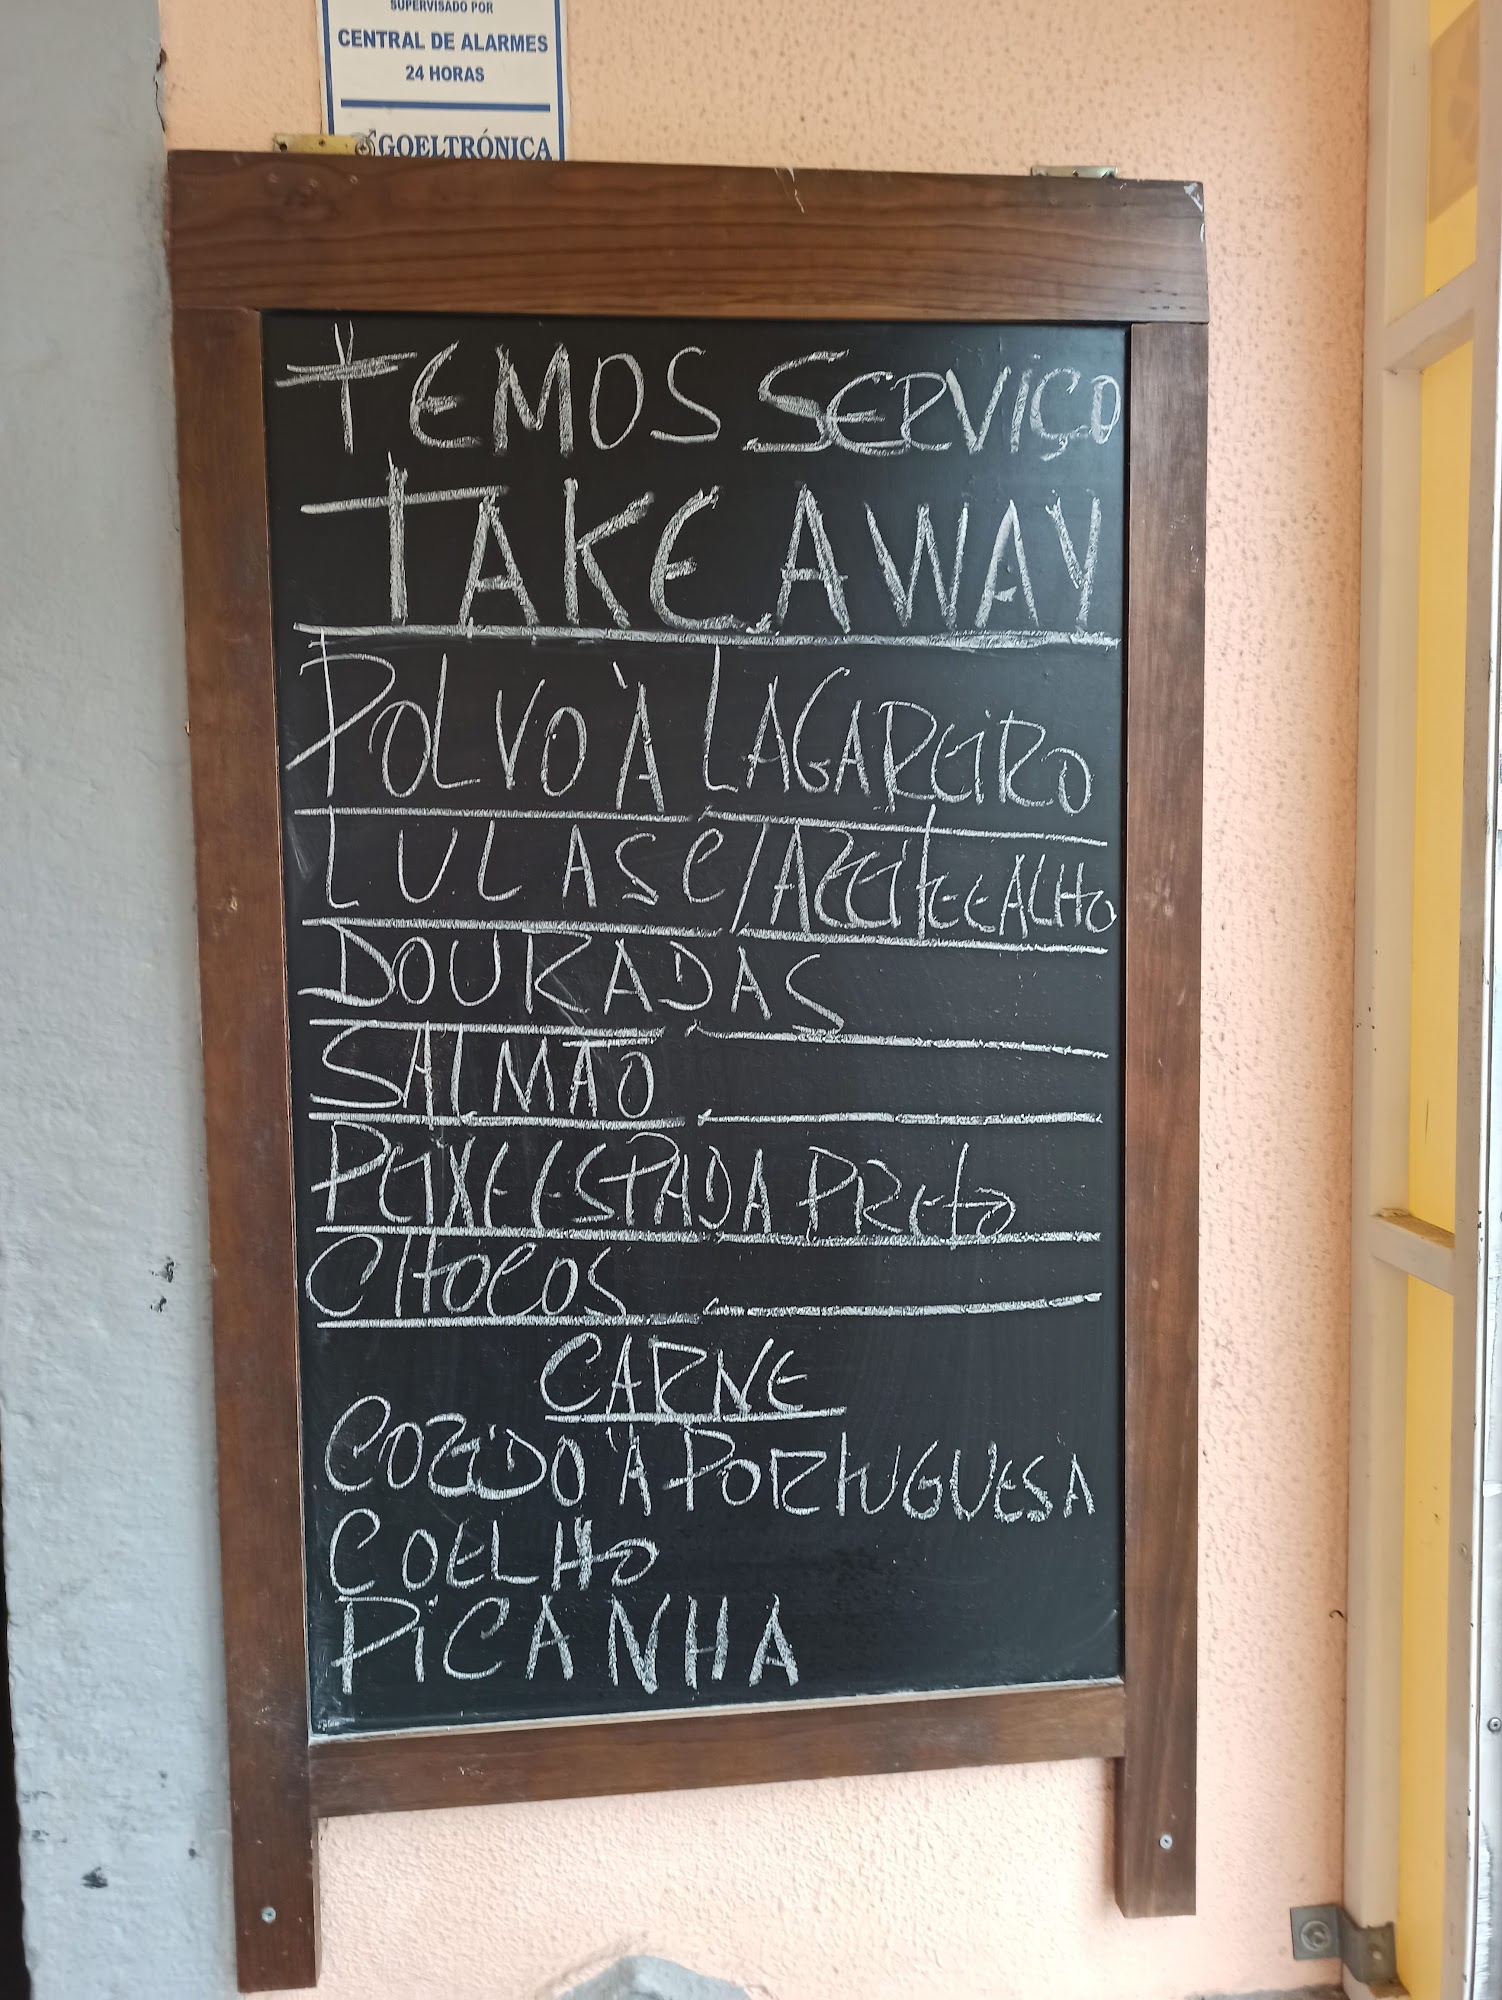 SUPERVISADO POR
CENTRAL DE ALARMES
24 HORAS
GOELTRÓNICA
TEMOS SERVIÇO
TAKE AWAY
POLVO À LAGAREIRO
LULAS C/AZEITE E ALHO
DOURADAS
SALMÃO
PEIXE ESPADA PRETO
CHOCOS
CARNE
COZIDO À PORTUGUESA
COELHO
PICANHA